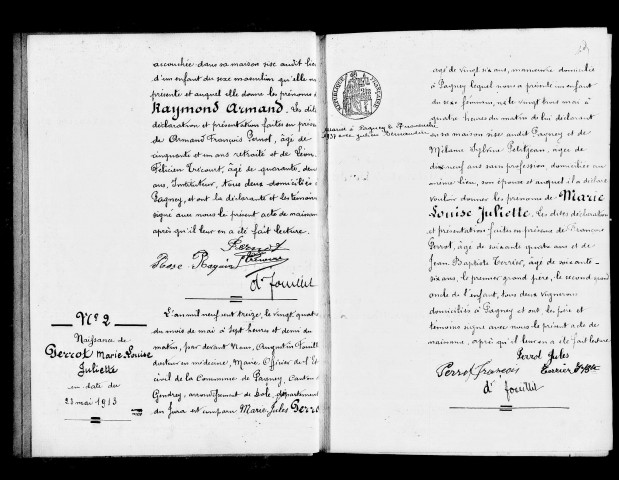 accouchée dans sa maison sise audit lieu
d'un enfant du sexe masculin qu'elle nous
présente et auquel elle donne les prénoms de
Raymond Armand. Les dites
déclaration et présentation faites en présence
de Armand François Pernot, âgé de
cinquante et un ans retraité et de Léon
Félicien Trécourt, âgé de quarante deux
ans, Instituteur, tous deux domiciliés à
Pagney, et ont la déclarante et les témoins
signé avec nous le présent acte de naissance
après qu'il leur en a été fait lecture.
Pernot
Rose
Dr Fouillet
No 2
Naissance de
Perrot Marie Louise
Juliette
en date du
23 mai 1913
L'an mil neuf cent treize, le vingt quatre
du mois de mai à sept heures et demi du
matin, par devant Nous, Augustin Fouillet
docteur en médecine, Maire, Officier de l'Etat
civil de la Commune de Pagney, Canton de
Gendrey, arrondissement de Dole, département
du Jura est comparu Marie Jules Perrot
RÉPUBLIQUE FRANÇAISE
Marié à Pagney le
1937 avec
âgé de vingt six ans, manœuvre domicilié
à Pagney lequel nous a présenté un enfant
du sexe féminin, né le vingt trois mai à
quatre heures du matin de lui déclarant
en sa maison sise audit Pagney et de
Mélanie Sylvina Petitjean, agée de
dix neuf ans sans profession, domiciliée au
même lieu, son épouse et auquel il a déclaré
vouloir donner les prénoms de Marie
Louise Juliette. Les dites déclaration
et présentation faites en présence de François
Perrot, âgé de soixante quatre ans et de
Jean Baptiste Terrier, âgé de soixante
six ans, le premier grand père, le second grand
oncle de l'enfant, tous deux vignerons
domiciliés à Pagney et ont les père et
témoins signé avec nous le présent acte de
naissance, après qu'il leur en a été fait lecture
Perrot Jules
Perrot François Terrier
Dr Fouillet